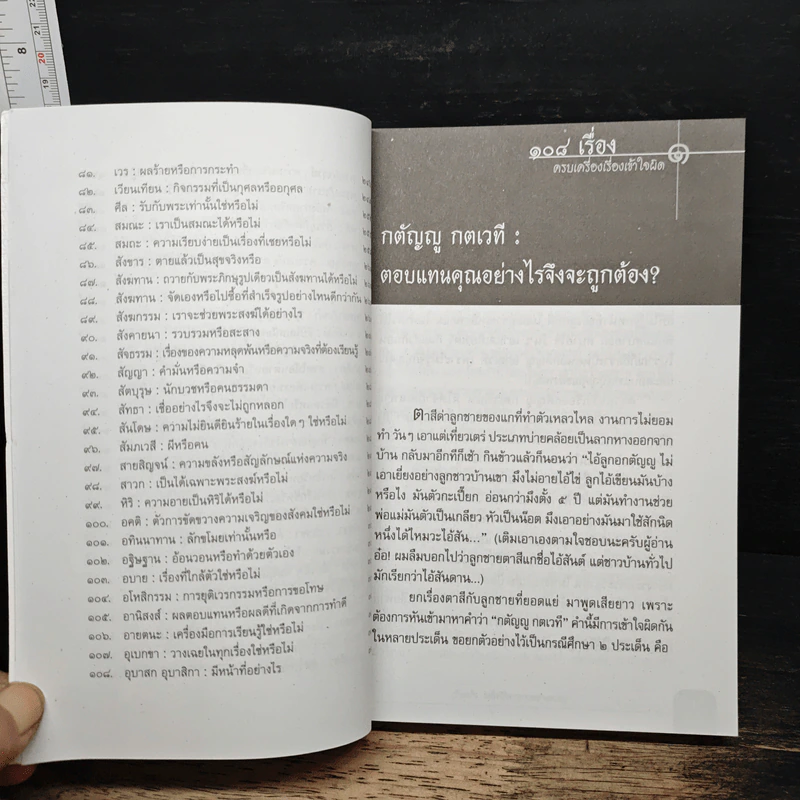 ๘๑. เวร : ผลร้ายหรือการกระทำ
๘๒. เวียนเทียน : กิจกรรมที่เป็นกุศลหรืออกุศล
๘๓. ศีล : รับกับพระเท่านั้นใช่หรือไม่
๘๔. สมณะ : เราเป็นสมณะได้หรือไม่
๘๕. สมถะ : ความเรียบง่ายเป็นเรื่องที่เชยหรือไม่
๘๖. สังขาร : ตายแล้วเป็นสุขจริงหรือ
๘๗. สังฆทาน : ถวายกับพระภิกษุรูปเดียวเป็นสังฆทานได้หรือไม่
๘๘. สังฆทาน : จัดเองหรือไปซื้อที่สำเร็จรูปอย่างไหนดีกว่ากัน
๘๙. สังฆกรรม : เราจะช่วยพระสงฆ์ได้อย่างไร
๙๐. สังคายนา : รวบรวมหรือสะสาง
๙๑. สัจธรรม : เรื่องของความหลุดพ้นหรือความจริงที่ต้องเรียนรู้
๙๒. สัญญา : คำมั่นหรือความจำ
๙๓. สัตบุรุษ : นักบวชหรือคนธรรมดา
๙๔. สัทธา : เชื่ออย่างไรจึงจะไม่ถูกหลอก
๙๕. สันโดษ : ความไม่ยินดียินร้ายในเรื่องใดๆ ใช่หรือไม่
๙๖. สัมภเวสี : ผีหรือคน
๙๗. สายสิญจน์ : ความขลังหรือสัญลักษณ์แห่งความจริง
๙๘. สาวก : เป็นได้เฉพาะพระสงฆ์หรือไม่
๙๙. หิริ : ความอายเป็นหิริได้หรือไม่
๑๐๐. อคติ : ตัวการขัดขวางความเจริญของสังคมใช่หรือไม่
๑๐๑. อทินนาทาน : ลักขโมยเท่านั้นหรือ
๑๐๒. อธิษฐาน : อ้อนวอนหรือทำด้วยตัวเอง
๑๐๓. อบาย : เรื่องที่ใกล้ตัวใช่หรือไม่
๑๐๔. อโหสิกรรม : การยุติเวรกรรมหรือการขอโทษ
๑๐๕. อานิสงส์ : ผลตอบแทนหรือผลดีที่เกิดจากการทำดี
๑๐๖. อายตนะ : เครื่องมือการเรียนรู้ใช่หรือไม่
๑๐๗. อุเบกขา : วางเฉยในทุกเรื่องใช่หรือไม่
๑๐๘. อุบาสก อุบาสิกา : มีหน้าที่อย่างไร
๑๐๘ เรื่อง ๑
ครบเครื่องเรื่องเข้าใจผิด
กตัญญู กตเวที :
ตอบแทนคุณอย่างไรจึงจะถูกต้อง?
ตาสีด่าลูกชายของแกที่ทำตัวเหลวไหล งานการไม่ยอม
ทำ วันๆ เอาแต่เที่ยวเตร่ ประเภทบ่ายคล้อยเป็นลากหางออกจาก
บ้าน กลับมาอีกทีก็เช้า กินข้าวแล้วก็นอนว่า “ไอ้ลูกอกตัญญู ไม่
เอาเยี่ยงอย่างลูกชาวบ้านเขา มึงไม่อายไอ้ไข่ ลูกไอ้เขียนมันบ้าง
หรือไง มันตัวกะเปี๊ยก อ่อนกว่ามึงตั้ง ๕ ปี แต่มันทำงานช่วย
พ่อแม่มันตัวเป็นเกลียว หัวเป็นน็อต มึงเอาอย่างมันมาใช้สักนิด
หนึ่งได้ไหมวะไอ้สัน...” (เติมเอาเองตามใจชอบนะครับผู้อ่าน
อ้อ! ผมลืมบอกไปว่าลูกชายตาสีแกชื่อไอ้สันต์ แต่ชาวบ้านทั่วไป
มักเรียกว่าไอ้สันดาน...)
ยกเรื่องตาสีกับลูกชายที่ยอดแย่ มาพูดเสียยาว เพราะ
ต้องการหันเข้ามาหาคำว่า “กตัญญู กตเวที” คำนี้มีการเข้าใจผิดกัน
ในหลายประเด็น ขอยกตัวอย่างไว้เป็นกรณีศึกษา ๒ ประเด็น คือ